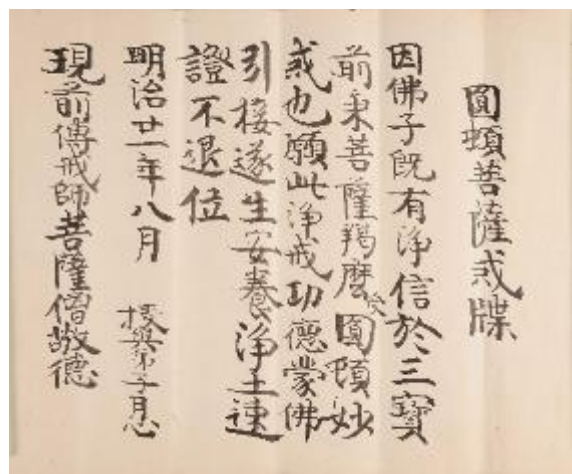 圓頓菩薩戒牒
因佛子既有淨信於三寶
前秉菩薩羯磨受圓頓妙
戒也願此淨戒功德蒙佛
引接遂生安養淨土速
證不退位
明治廿一年八月 授與弟子月心
現前傳戒師菩薩僧敬德